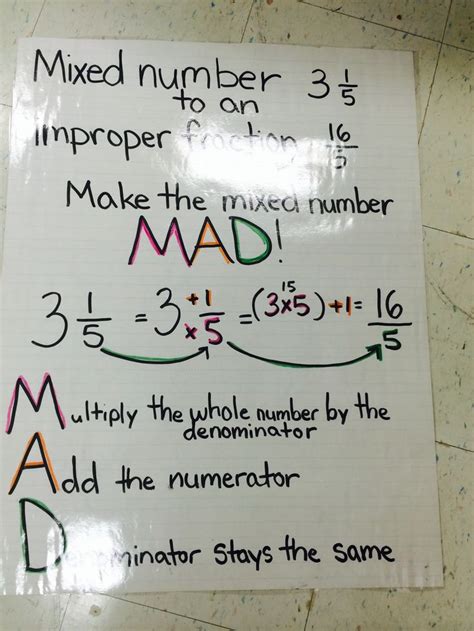 Mixed number 3 1/5
to an
improper fraction 16/5
Make the mixed number
MAD!
15
3 1/5 = 3 +1/×5 = (3×5) +1= 16/5
Multiply the whole number by the
denominator
Add the numerator
Denominator stays the same